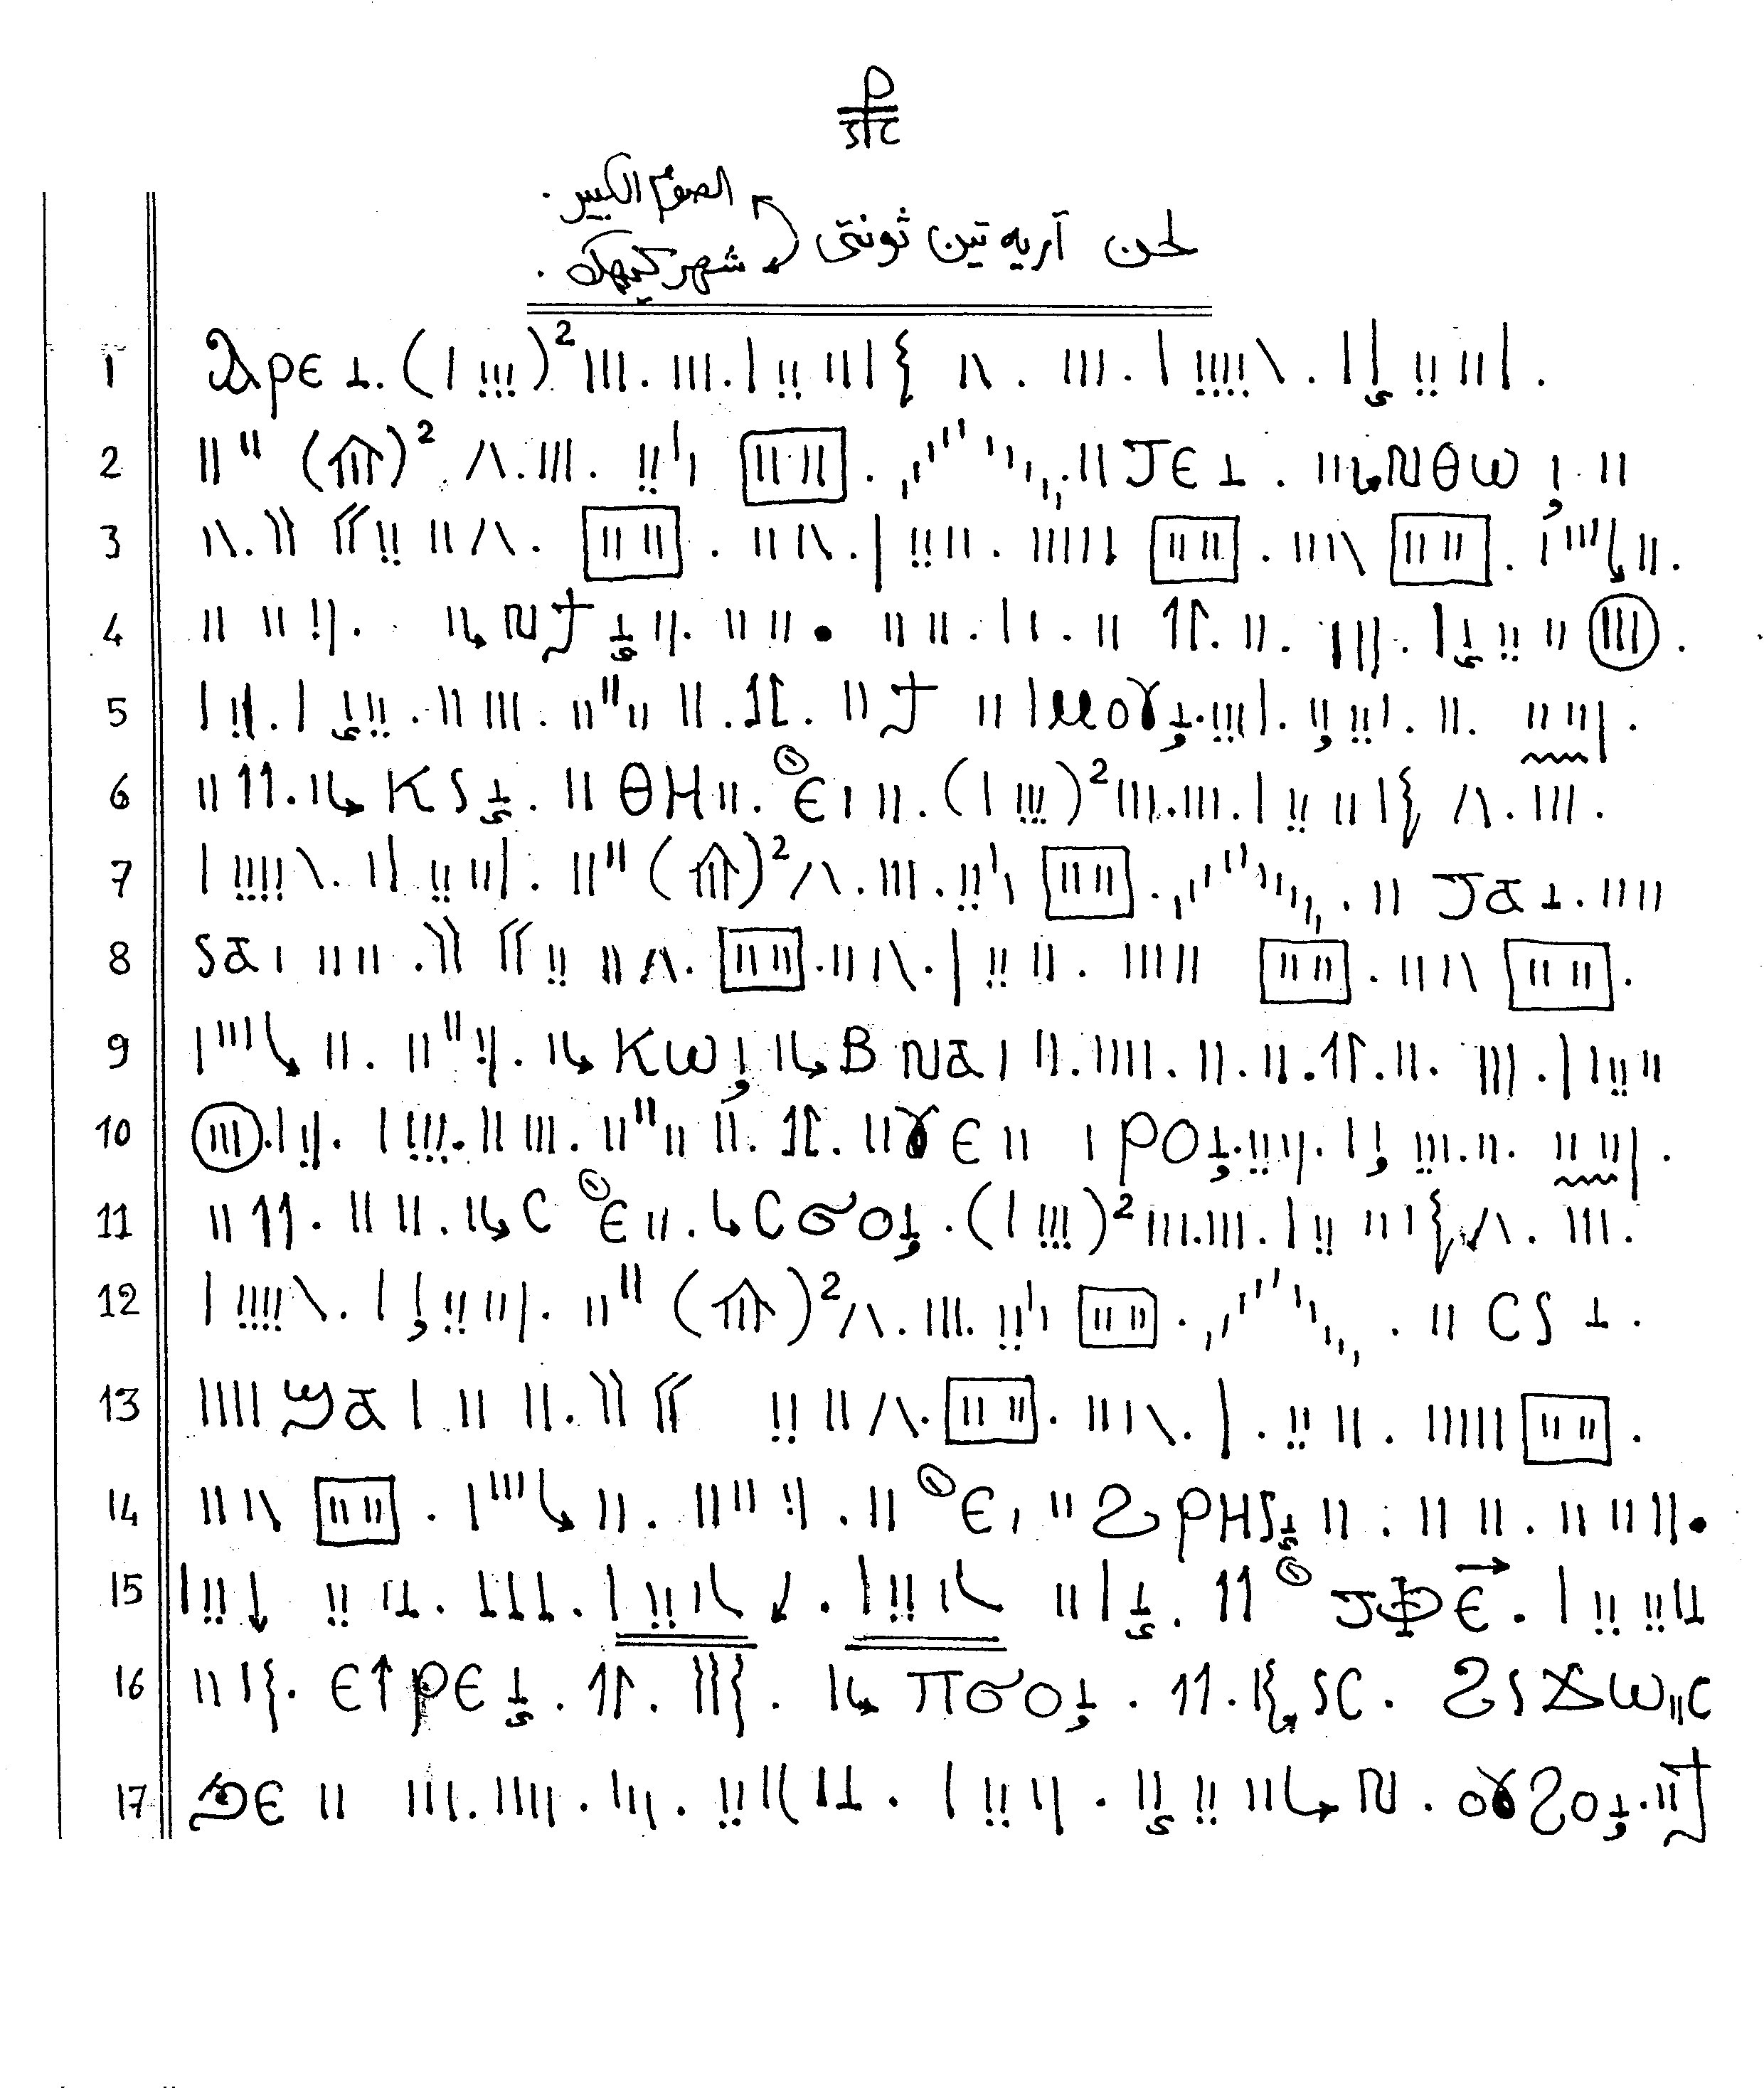 لحن آريه تين ثونتى
الصوم الكبير .
شهر كيهك .
1 Ⲁⲣⲉ
2 ⲧⲉ ⲛⲑⲱ
3
4 ⲛϯ
5 ϯ ⲙⲟⲩ
6 ⲕⲓ ⲑⲏ ⲉ
7 ⲧⲁ
8 ⲓⲁ
9 ⲕⲱ ⲃ ⲛⲁ
10 ⲩⲉ ⲣⲟ
11 ⲥ ⲉ ⲥϭⲟ
12 ⲥⲓ
13 ϣⲁ
14 ⲉ ϩⲣⲏⲓ
15 ⲧⲫⲉ
16 ⲉⲣⲉ ⲡϭⲟ ⲓⲥ ϩⲓϫⲱⲥ
17 ϧⲉ ⲛ ⲟⲩϩⲟ ϯ